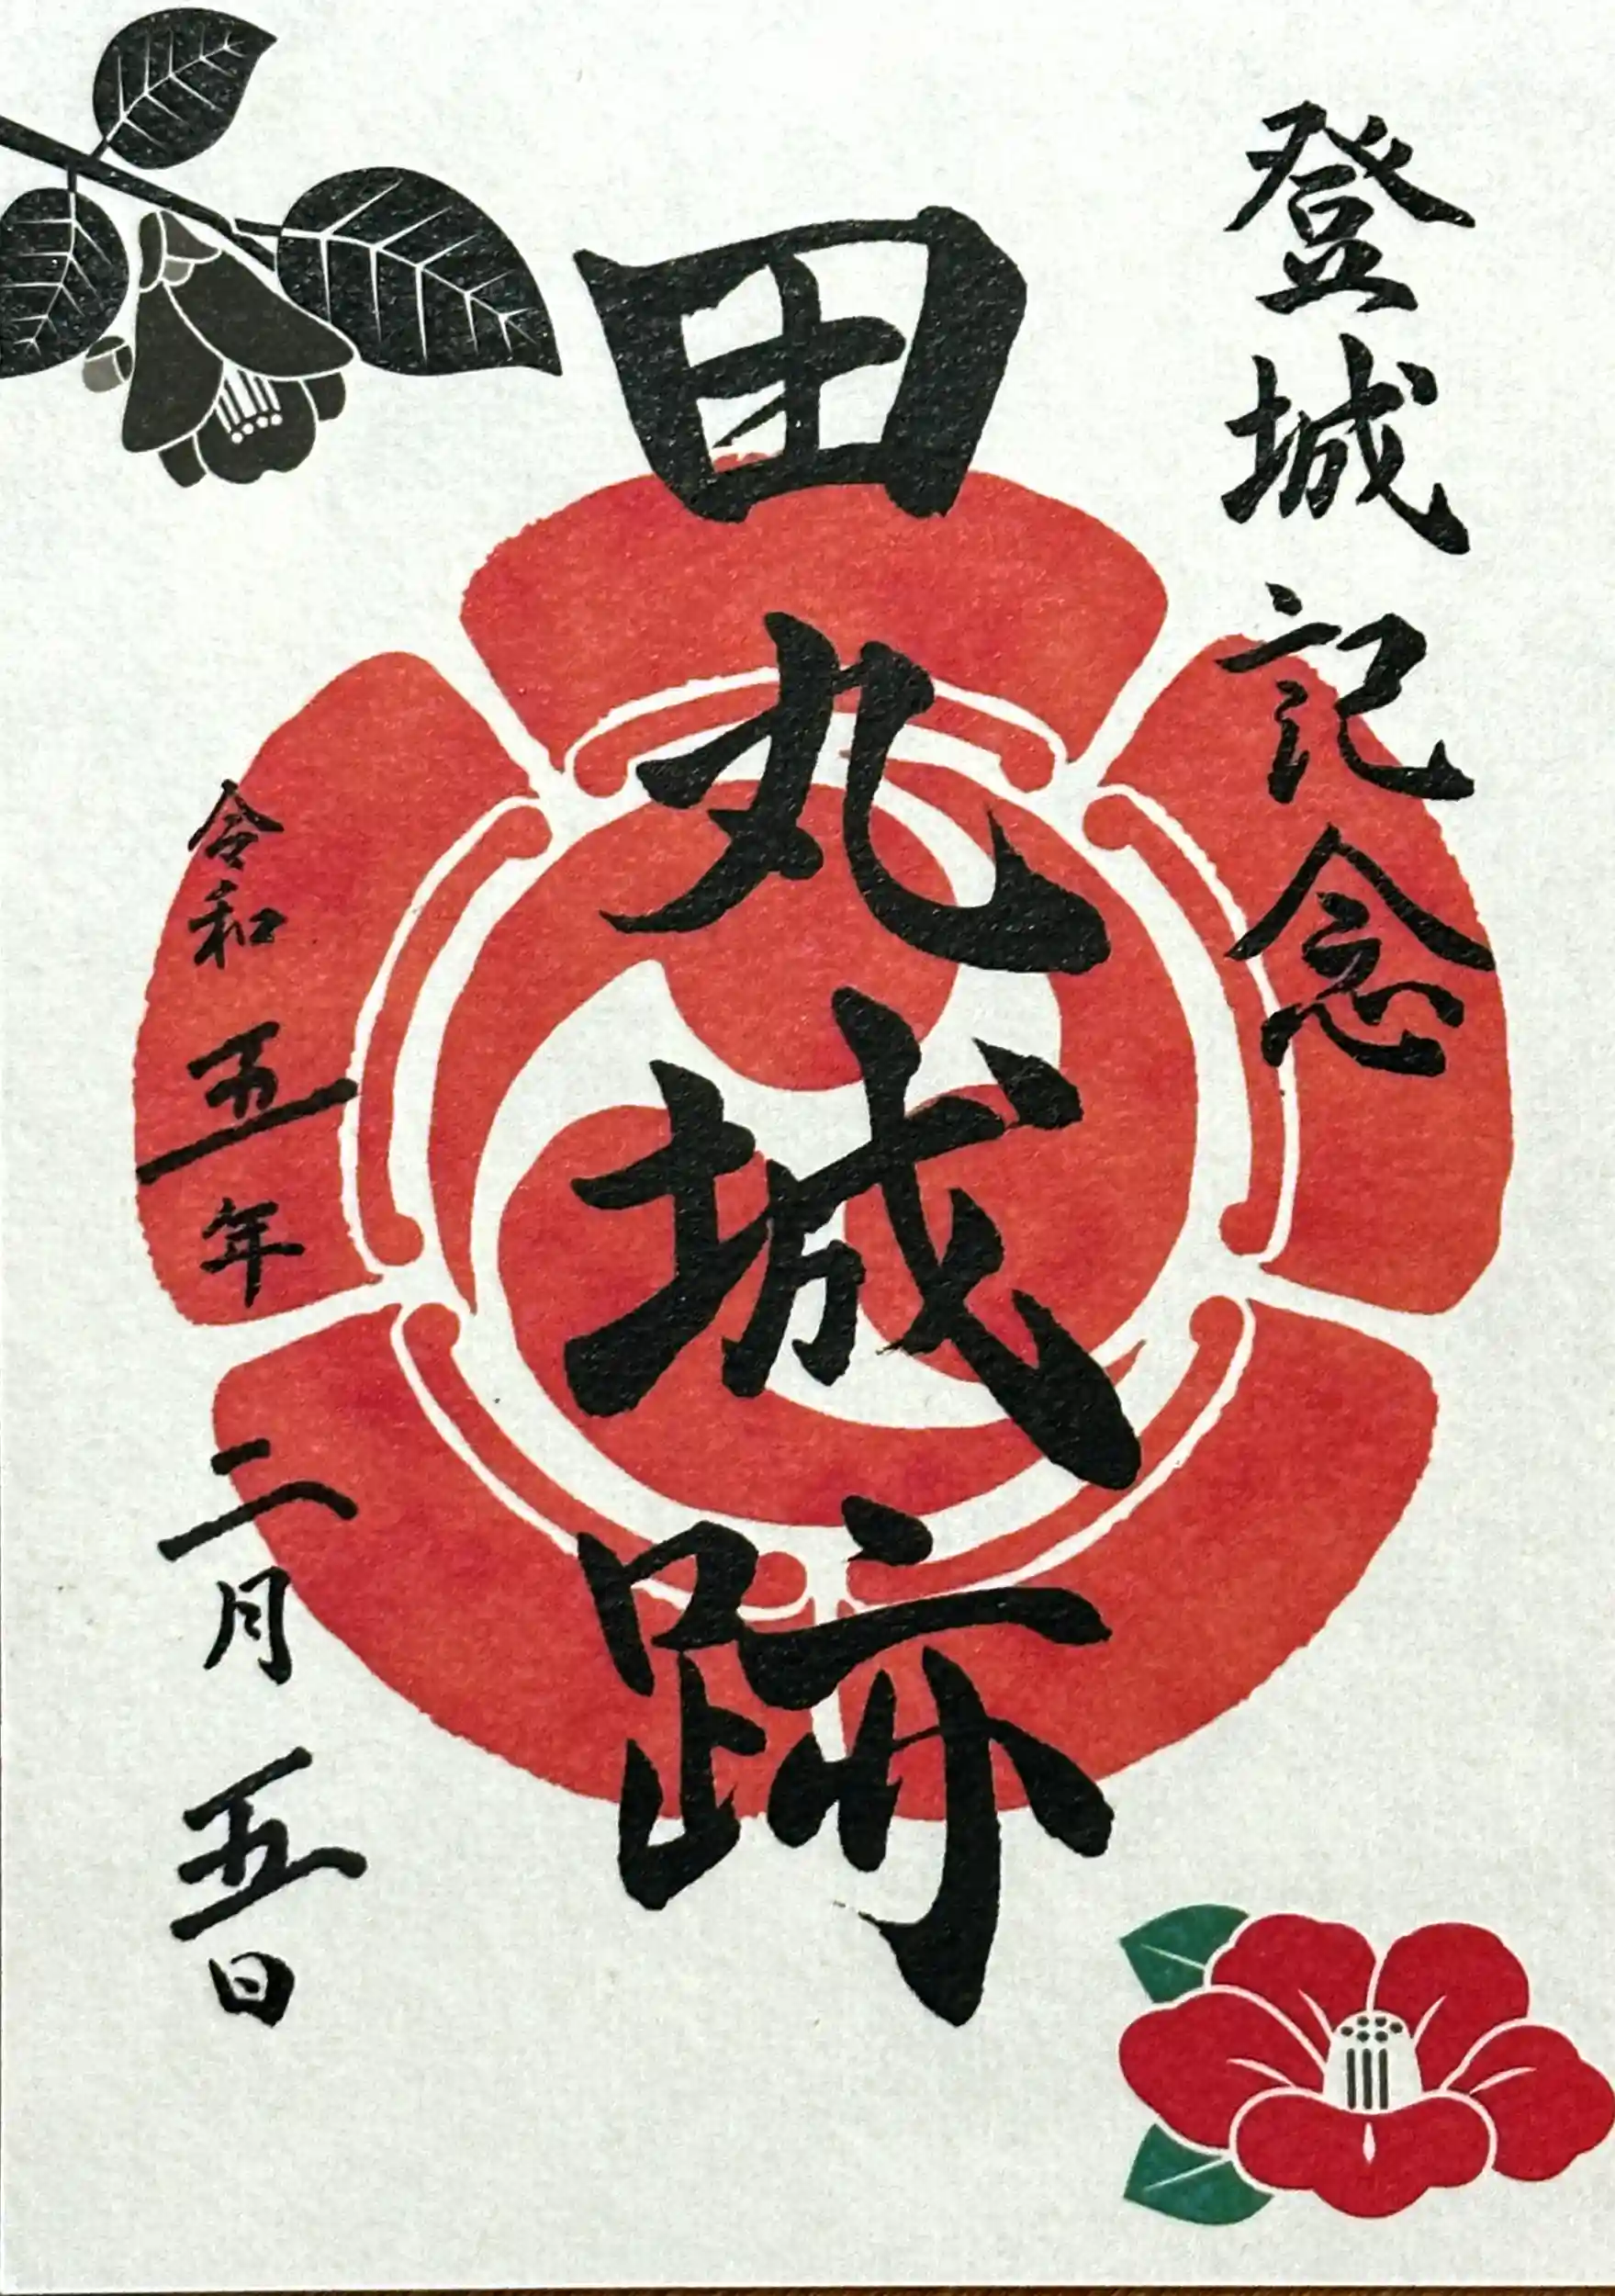 登城記念
田丸城跡
令和五年二月五日